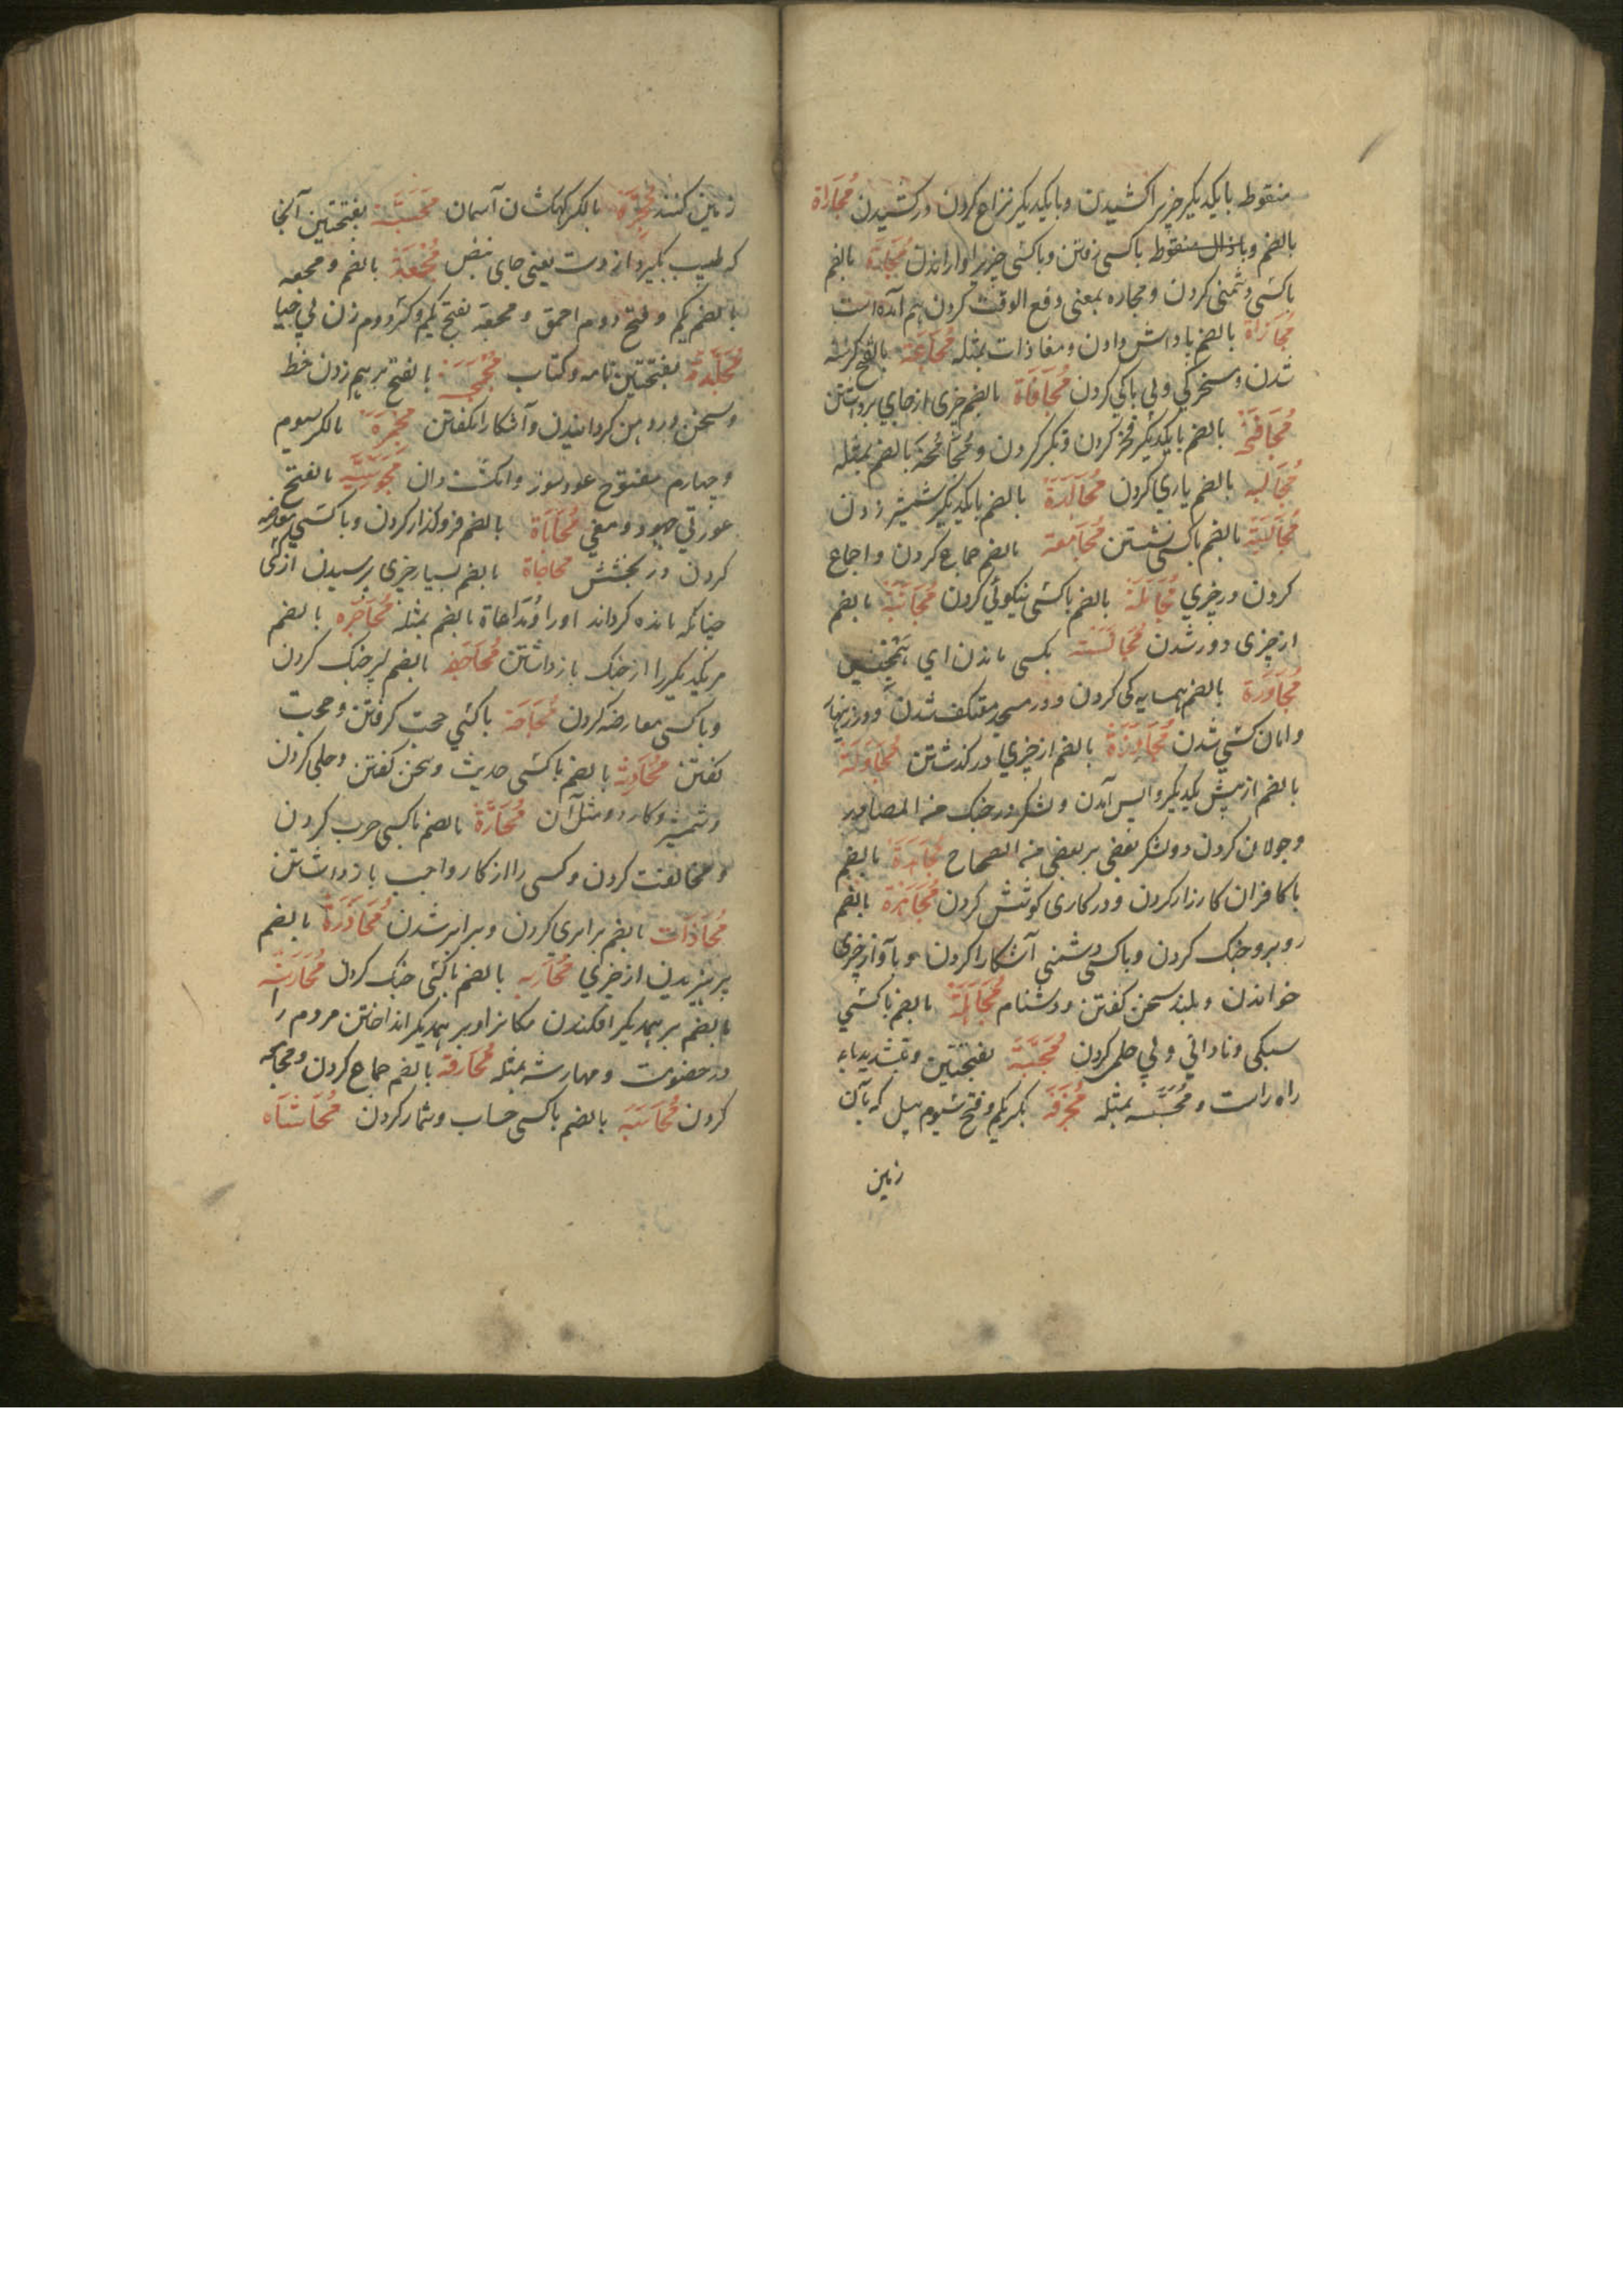 منقوط بایکدیکر چیز را کشیدن و بایکدیکر نزاع کردن در کشیدن مُجَارَاة
بالضم و با ذال منقوط باکسی رفتن و باکسی چیز را وا راندن بالضم
باکسی دشمنی کردن و مجاره بمعنی دفع الوقت کردن هم آمده است
مُجَازَاة بالضم پاداش دادن و مغاذات بمثله مُجَاعَة بالفتح کرسنه
شدن و سخرکی و بی باکی کردن مُجَافَاة بالضم چیزی از جای برداشتن
مُجَافَخَة بالضم بایکدیکر فخر کردن و تکبر کردن و بالضم بمثله
مُجَالَبه بالضم یاری کردن مُجَالَدَة بالضم بایکدیکر شمشیر زدن
مُجَالَسَة بالضم باکسی نشستن مُجَامَعَة بالضم جماع کردن و اجماع
کردن در چیزی مُجَامَلَة بالضم باکسی نیکوئی کردن مُجَانَبَة بالضم
از چیزی دور شدن مُجَانَسَة بکسی ماندن ای
مُجَاوَرَة بالضم همسایه کی کردن و در مسجد معتکف شدن و در زینهار
و امان کسی شدن مُجَاوَزَة بالضم از چیزی در کذشتن مُجَاوَلَة
بالضم از پیش یکدیکر واپس آمدن و لشکر در جنک من المصادر
و جولان کردن دو لشکر بعضی بر بعضی من الصحاح مُجَاهَدَة بالضم
با کافران کارزار کردن و در کاری کوشش کردن مُجَاهَرَة بالضم
روبرو جنک کردن و باکسی دشمنی آشکارا کردن و باواز چیزی
خواندن و بلند سخن کفتن و دشنام مُجَاهَلَة بالضم باکسی
سبکی و نادانی و بی حلمی کردن مَحَجَّة بفتحتین و تشدید
راه راست و بمثله مِجْرَفَة بکسر یکم و فتح سیوم بیل که بآن
زمین
زمین کنند مَجَرَّة بالکسر کهکشان آسمان مَجَسَّة بفتحتین آنجا
که طبیب بکیرد از دست یعنی جای نبض بالضم و مجعه
بالضم یکم و فتح دوم احمق و مجعة بفتح یکم و کسر دوم زن بی حیا
مَجَلَّة بفتحتین نامه و کتاب مَجْمَجَة بالفتح بر هم زدن خط
و سخن در دهن کردانیدن و آشکارا نکفتن مِجْمَرَة بالکسر سیوم
و چهارم مفتوح عود سوز و انکشت دان مَجُوسِیَّه بالفتح
عورتی جهود و مغی مُحَابَاة بالضم فرو کذار کردن و باکسی معارضه
کردن در بخشش محاجاة بالضم بسیار چیزی پرسیدن از کسی
چنانکه مانده کرداند او را و مداهاة بالضم بمثله مُحَاجَزَه بالضم
مر یکدیکر را از جنک باز داشتن بالضم جنک کردن
و باکسی معارضه کردن مُحَاجَّة باکسی حجت کرفتن و حجت
کفتن مُحَادَثَة بالضم باکسی حدیث و سخن کفتن و جلی کردن
شمشیر و کارد و مثل آن مُحَادَّة بالضم باکسی حرب کردن
و مخالفت کردن و کسی را از کار واجب باز داشتن
مُحَاذَات بالضم برابری کردن و برابر شدن مُحَاذَرَة بالضم
پرهیزیدن از چیزی مُحَارَبه بالضم باکسی جنک کردن
بالضم بر همدیکر افکندن سکانرا و بر همدیکر انداختن مردم را
در خصومت و مهارشه بمثله مُحَارَفَة بالضم جماع کردن و
کردن مُحَاسَبَة بالضم باکسی حساب و شمار کردن مُحَاشَاه